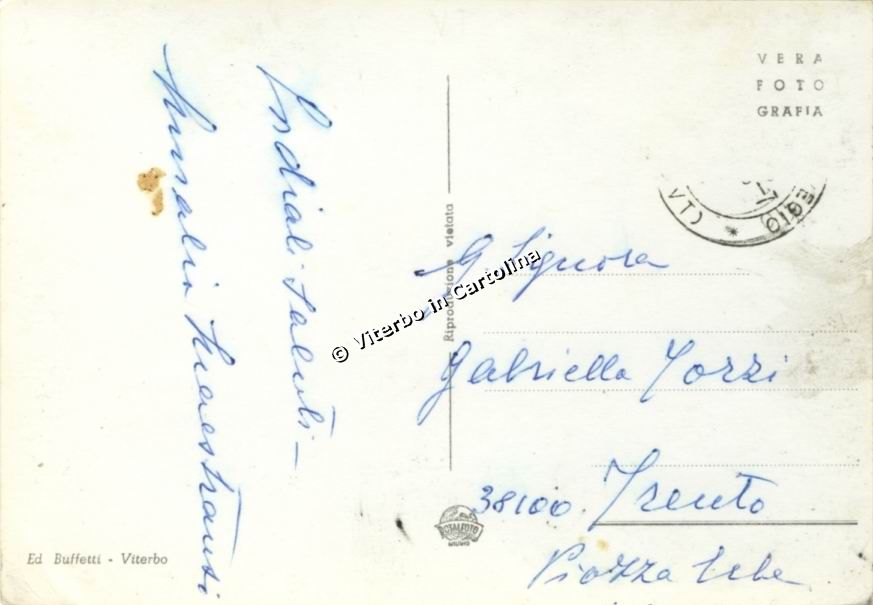 VERA
FOTO
GRAFIA
(VT)
Cordiali saluti -
Maestransi
Riproduzione vietata
© Viterbo in Cartolina
G. Signora
Gabriella Tozzi
38100 Trento
Piazza Erbe
ROTALFOTO
MILANO
Ed Buffetti - Viterbo